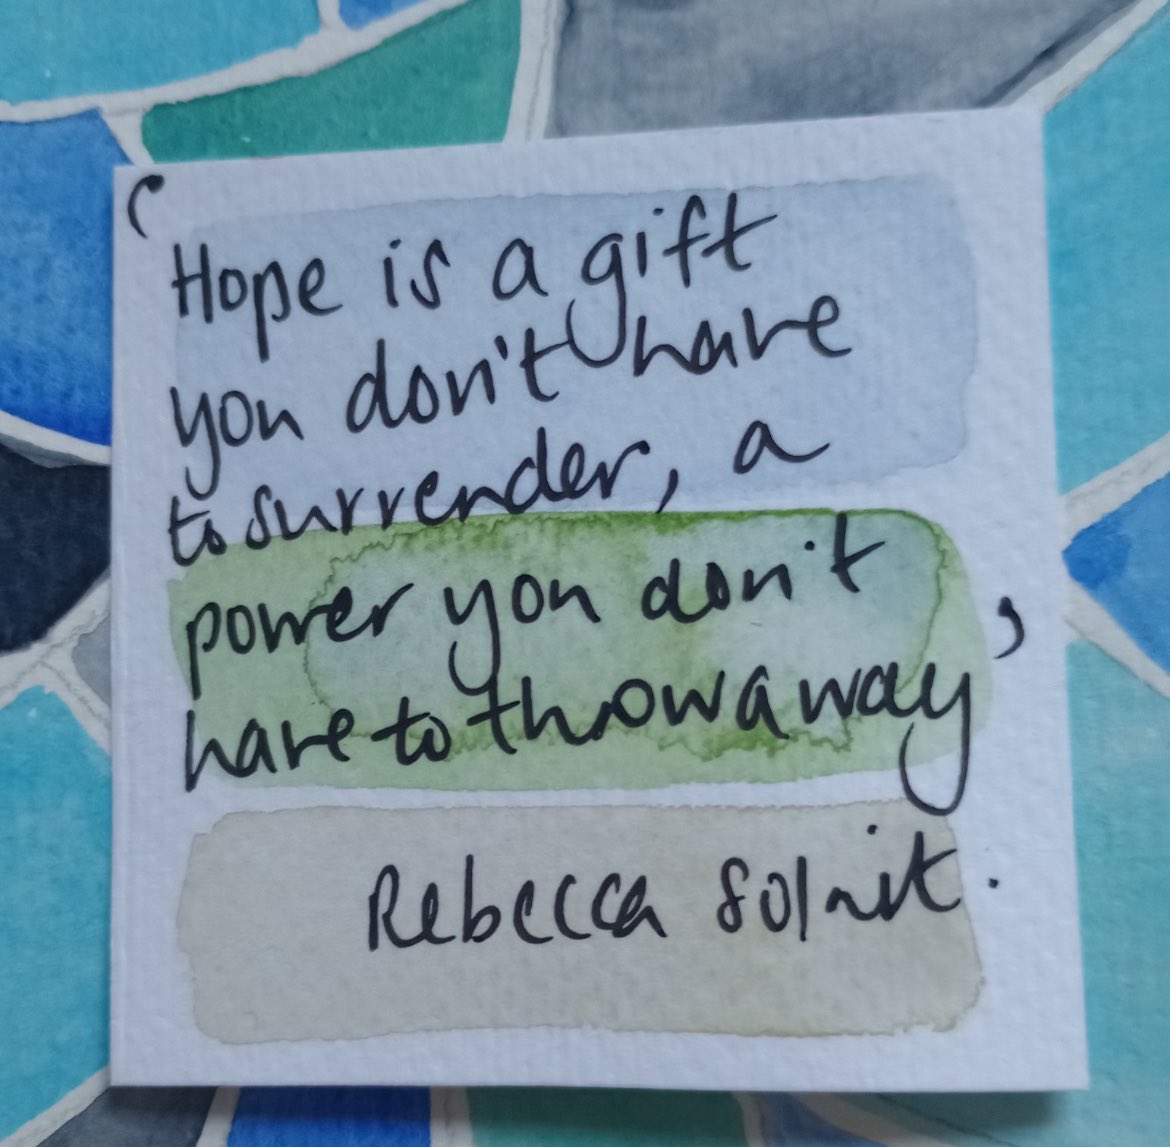 'Hope is a gift
you don't have
to surrender, a
power you don't
have to throw away'
Rebecca Solnit.